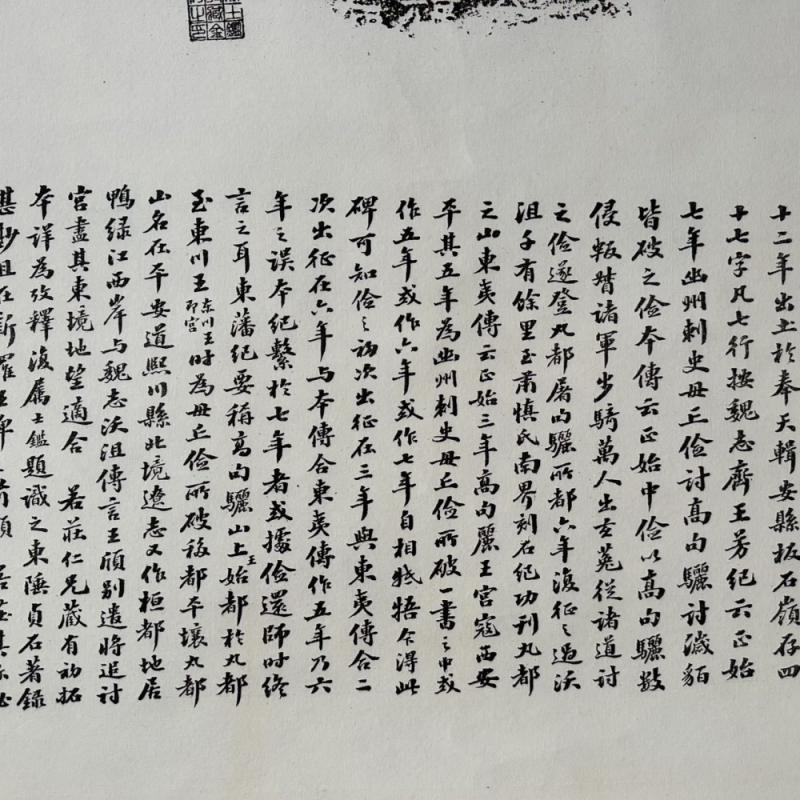 十二年出土於奉天輯安縣板石嶺存四
十七字凡七行按魏志齊王芳紀云正始
七年幽州刺史毋丘儉討高句驪討濊貊
皆破之儉本傳云正始中儉以高句驪數
侵叛督諸軍步騎萬人出玄菟從諸道討
之儉遂登丸都屠句驪所都六年復征之過沃
沮千有餘里至肅慎氏南界刻石紀功刊丸都
之山東夷傳云正始三年高句麗王宮寇西安
平其五年為幽州刺史毋丘儉所破一書之中或
作五年或作六年或作七年自相牴牾今得此
碑可知儉之初次出征在三年與東夷傳合二
次出征在六年與本傳合東夷傳作五年乃六
年之誤本紀繫於七年者或據儉還師時終
言之耳東藩紀要稱高句驪山上王始都於丸都
至東川王東川王即宮時為毋丘儉所破移都平壤丸都
山名在平安道熙川縣北境遼志又作桓都地居
鴨綠江西岸與魏志沃沮傳言王頎別遣將追討
宮盡其東境地望適合 若莊仁兄藏有初拓
本詳為攷釋復屬士鑑題識之東陲貞石著錄